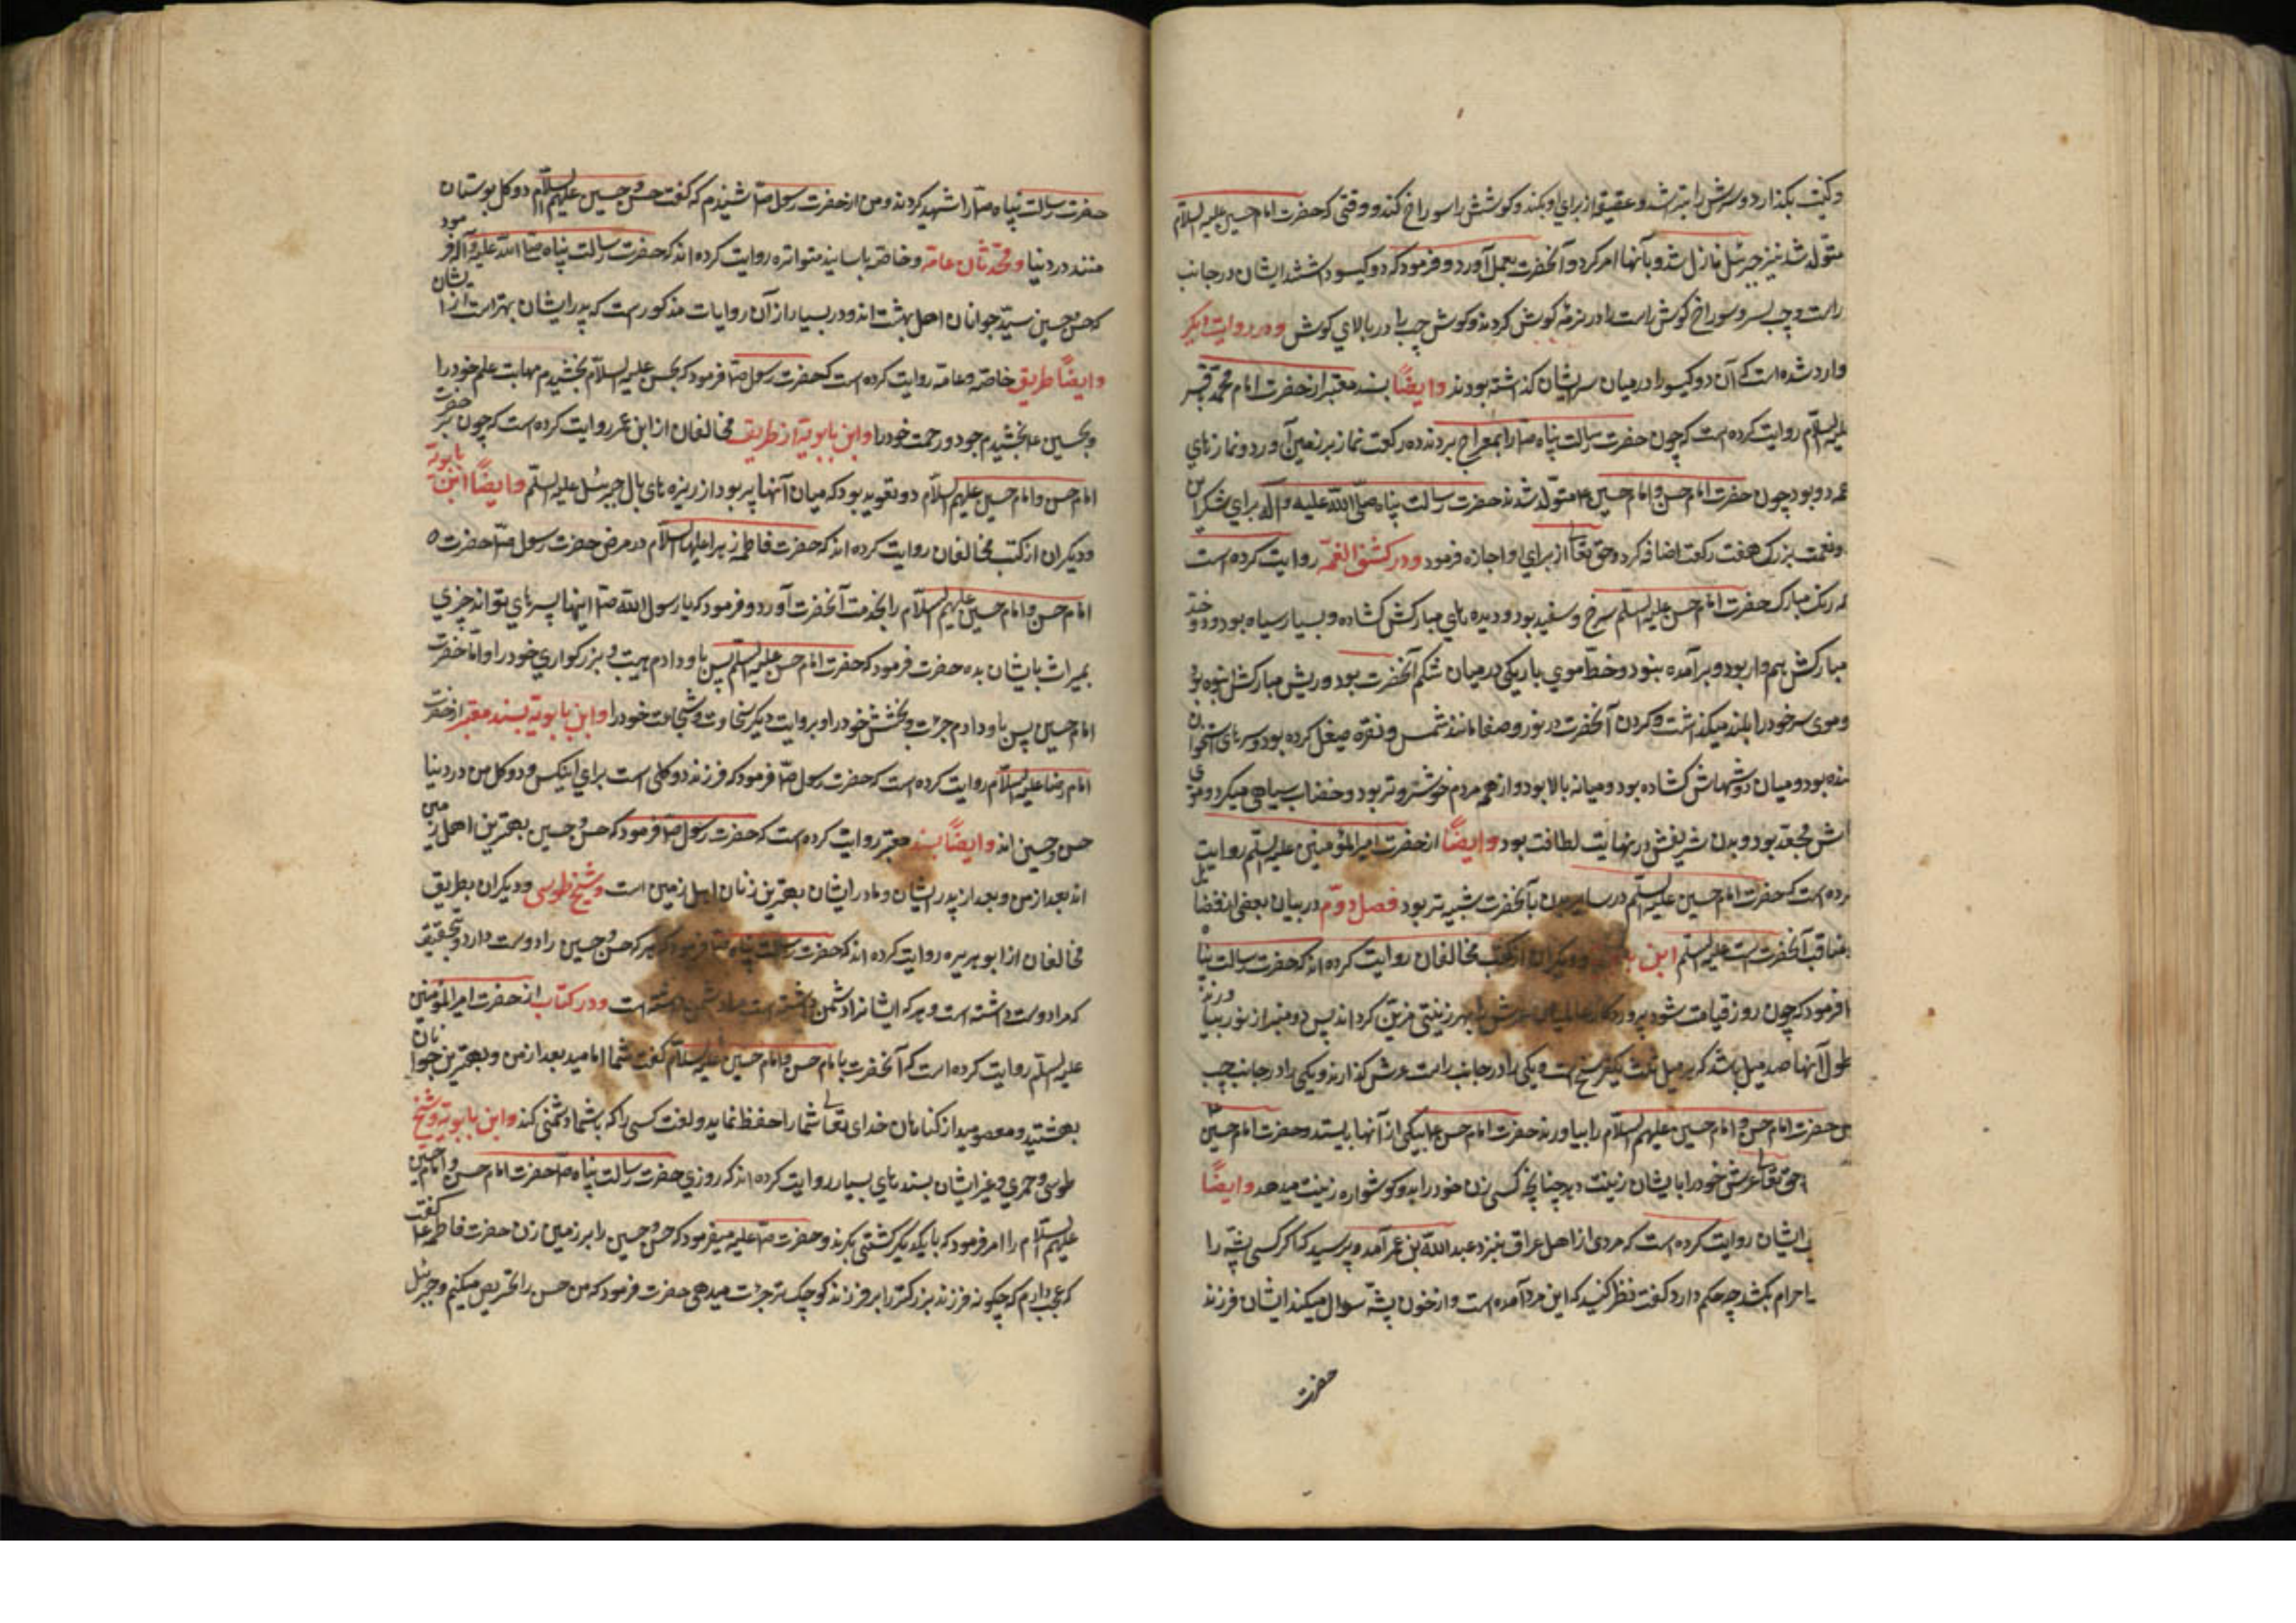 وکنیت بکذارد و سرش را بتراشد و عقیقه از برای او بکند و کوشش را سوراخ کند و وقتی که حضرت امام حسین علیه السلام
متولد شد نیز جبرئیل نازل شد و بآنها امر کرد و آنحضرت بعمل آورد و فرمود که دو کیسو داشتند ایشان در جانب
راست و چپ سر و سوراخ کوش راست را در نرمه کوش کردند و کوش چپ را در بالای کوش و در روایت دیکر
وارد شده است که آن دو کیسو را در میان سر ایشان کذاشته بودند وایضًا بسند معتبر از حضرت امام محمد باقر
علیه السلام روایت کرده است که چون حضرت رسالت پناه ص را بمعراج بردند ده رکعت نماز بر زمین آورد و نمازهای
همه دو بود چون حضرت امام حسن و امام حسین ع متولد شدند حضرت رسالت پناه صلی الله علیه و آله برای شکر این
ونعمت بزرک هفت رکعت اضافه کرد و حق تعالی از برای او اجازه فرمود ودر کشف الغمّه روایت کرده است
که رنک مبارک حضرت امام حسن علیه السلم سرخ و سفید بود و دیده های مبارکش کشاده و بسیار سیاه بود و دو خدّ
مبارکش هموار بود و برآمده نبود و خط موی باریکی در میان شکم آنحضرت بود و ریش مبارکش انبوه بود
وموی سر خود را بلند میکذاشت و کردن آنحضرت در نور و صفا مانند شمس و نقره صیقل کرده بود و سرهای استخوان
کنده بود و میان دوشهاش کشاده بود و میانه بالا بود و از همه مردم خوشتروتر بود و خضاب سیاهی میکرد و موی
اش مجعد بود و بدن شریفش در نهایت لطافت بود وایضًا از حضرت امیرالمؤمنین علیه السلم روایت
کرده است که حضرت امام حسین علیه السلم در سایر بدن بآنحضرت شبیه تر بود فصل دوّم در بیان بعضی از فضایل
ومناقب آنحضرت است علیه السلم ابن بابویه و دیکران از کتب مخالفان روایت کرده اند که حضرت رسالت پناه
ص فرمود که چون روز قیامت شود پروردکار عالمیان عرش را بهر زینتی مزیّن کرداند پس دو منبر از نور بیاورند
طول آنها صد میل باشد که هر میل ثلث یکفرسخ است و یکی را در جانب راست عرش کذارند و یکی را در جانب چپ
پس حضرت امام حسن و امام حسین علیهم السلام را بیاورند حضرت امام حسن ع بیکی از آنها بایستد و حضرت امام حسین ع
حق تعالی عرش خود را بایشان زینت دهد چنانچه کسی زن خود را بدو کوشواره زینت میدهد وایضًا
ایشان روایت کرده است که مردی از اهل عراق بنزد عبدالله بن عمر آمد و پرسید که اکر کسی پشه را
احرام بکشد چه حکم دارد کفت نظر کنید که این مرد آمده است و از خون پشه سوال میکند ایشان فرزند
حضرت
حضرت رسالت پناه ص را شهید کردند و من از حضرت رسول ص شنیدم که کفت حسن و حسین علیهم السلام دو کل بوستان
منند در دنیا ومحدثان عامّه وخاصّه باسانید متواتره روایت کرده اند که حضرت رسالت پناه صلی الله علیه وآله فرمود
که حسن و حسین سید جوانان اهل بهشت اند و در بسیار از آن روایات مذکور است که پدر ایشان بهتر است از ایشان
وایضًا طریق خاصّه وعامّه روایت کرده است که حضرت رسول ص فرمود که بحسن علیه السلام بخشیدم مهابت علم خود را
وبحسین ع بخشیدم جود و رحمت خود را وابن بابویه از طریق مخالفان از ابن عمر روایت کرده است که چون بر حضرت
امام حسن و امام حسین علیهم السلام دو تعوید بود که میان آنها پر بود از ریزه های بال جبرئیل علیه السلم وایضًا ابن بابویه
ودیکران از کتب مخالفان روایت کرده اند که حضرت فاطمه زهرا علیها السلام در مرض حضرت رسول ص حضرت
امام حسن و امام حسین علیهم السلام را بخدمت آنحضرت آورد و فرمود که یا رسول الله ص اینها پسرهای تواند چیزی
بمیراث بایشان بده حضرت فرمود که حضرت امام حسن علیه السلم پس باو دادم هیبت و بزرکواری خود را و اما حضرت
امام حسین پس باو دادم جرئت و بخشش خود را و بروایت دیکر سخاوت و شجاعت خود را وابن بابویه بسند معتبر از حضرت
امام رضا علیه السلام روایت کرده است که حضرت رسول ص فرمود که فرزند دو کلی است برای اینکس و دو کل من در دنیا
حسن و حسین اند وایضًا بسند معتبر روایت کرده است که حضرت رسول ص فرمود که حسن و حسین بهترین اهل زمین
اند بعد از من و بعد از پدر ایشان و مادر ایشان بهترین زنان اهل زمین است وشیخ طوسی ودیکران بطریق
مخالفان از ابو هریره روایت کرده اند که حضرت رسالت پناه ص فرمود که هر که حسن و حسین را دوست دارد بتحقیق
که مرا دوست داشته است و هر که ایشانرا دشمن داشته است مرا دشمن داشته است ودر کتاب از حضرت امیرالمؤمنین
علیه السلم روایت کرده است که آنحضرت بامام حسن و امام حسین علیه السلام کفت شما امامید بعد از من و بهترین جوانان
بهشتید و معصومید از کناهان خدای تعالی شما را حفظ نماید و لعنت کسی را که باشما دشمنی کند وابن بابویه وشیخ
طوسی و حمیری و غیر ایشان بسندهای بسیار روایت کرده اند که روزی حضرت رسالت پناه ص حضرت امام حسن و امام حسین
علیهم السلام را امر فرمود که با یکدیکر کشتی بکیرند و حضرت ص علیه میفرمود که حسن و حسین را بر زمین زن حضرت فاطمه ع کفت
که عجب دارم که چکونه فرزند بزرکتر را بر فرزند کوچک تر جرئت میدهی حضرت فرمود که من حسن را تحریص میکنم و جبرئیل